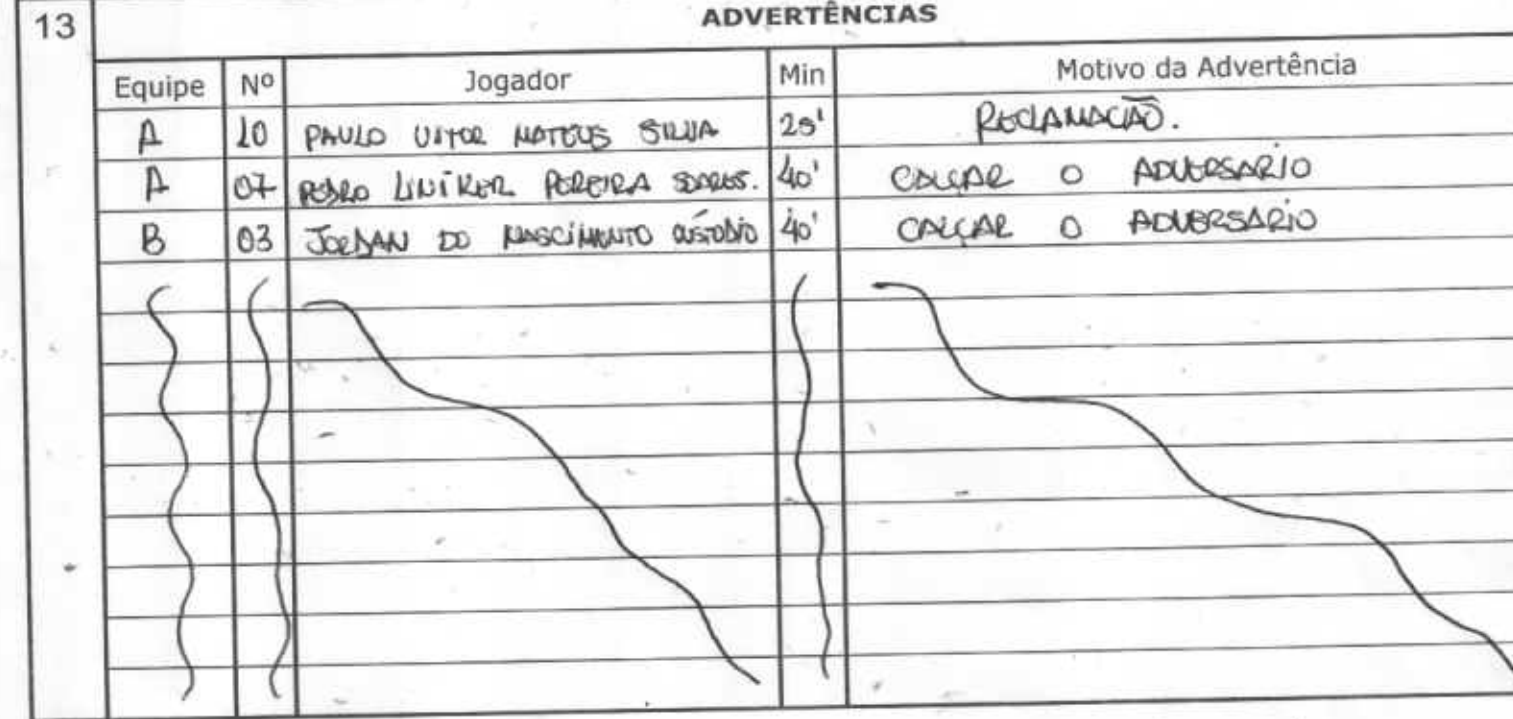 13 ADVERTÊNCIAS
Equipe Nº Jogador Min Motivo da Advertência
A 10 PAULO VITOR MATEUS SILVA 25' RECLAMAÇÃO.
A 07 PEDRO LINIKER PEREIRA SOARES. 40' CALÇAR O ADVERSARIO
B 03 JORDAN DO NASCIMENTO CUSTÓDIO 40' CALÇAR O ADVERSARIO